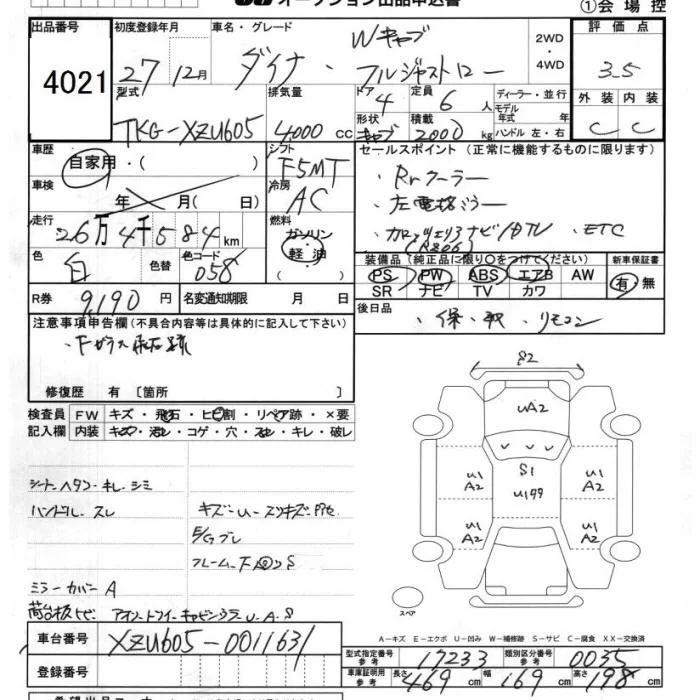 オークション出品申込書
①会場控
出品番号 4021
初度登録年月 27年12月
車名・グレード ダイナ・Wキャブ フルジャストロー
2WD・4WD
評価点 3.5
外装 C 内装 C
型式 TKG-XZU605
排気量 4000 cc
ドア 4
形状 キャブ
定員 6人
積載 2000 kg
ディーラー・並行
モデル年式 年式
ハンドル 左・右
車歴 自家用・( )
シフト F5MT
セールスポイント(正常に機能するものに限ります)
・Rrクーラー
・左電格ミラー
・カロッツェリアナビ/DTV ・ETC
(RZ06)
車検 年 月( 日)
冷房 AC
走行 26万4千584km
燃料 ガソリン・軽油
色 白 色替 色コード 058
装備品(純正品に限り○をつけてください) 新車保証書
PS PW ABS エアB AW 有・無
SR ナビ TV カワ
R券 9,190円 名変通知期限 月 日
後日品 ・保・取・リモコン
注意事項申告欄(不具合内容等は具体的に記入して下さい)
・Fガラス飛石跡
修復歴 有 〔箇所 〕
検査員記入欄
FW キズ・飛石・ヒビ割・リペア跡・×要
内装 キズ・汚レ・コゲ・穴・スレ・キレ・破レ
シートヘタン・キレ・シミ
ハンドル・スレ
キズ-U-スリキズ
E/Gブレ
フレーム・F
ミラーカバーA
荷台板トビ
S2
UA2
U1 A2 S1 U1 A2
U1 A2 U1 A2
スペア
A-キズ E-エクボ U-凹み W-補修跡 S-サビ C-腐食 XX-交換済
車台番号 XZU605-0011631
登録番号
型式指定番号 参考 17233 類別区分番号 参考 0035
車庫証明用 参考 長さ 469cm 幅 169cm 高さ 198cm